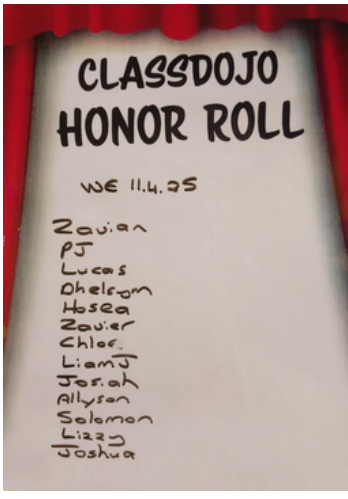 CLASSDOJO
HONOR ROLL
WE 11.4.25
Zavian
PJ
Lucas
Hosea
Zavier
Chloe
Liam J
Josiah
Allyson
Solomon
Lizzy
Joshua